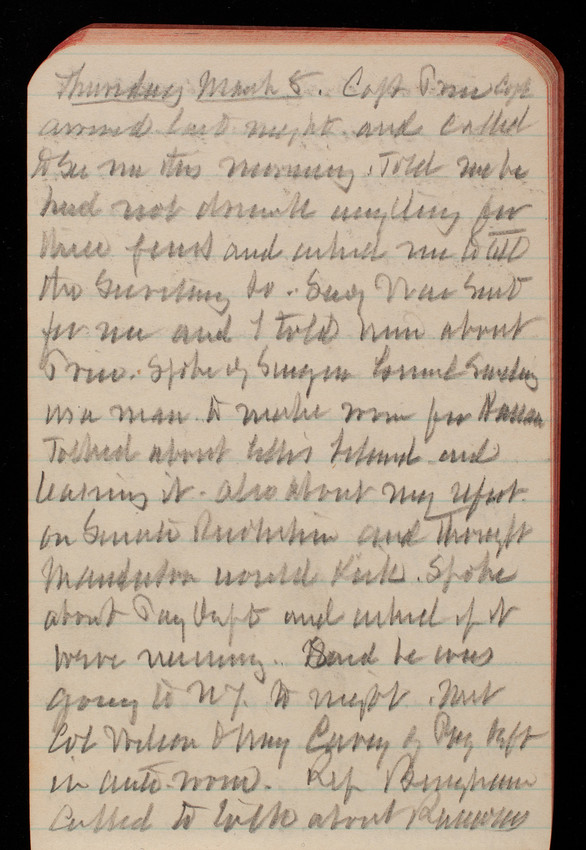 Thursday March 8. Capt
arrived last night and called
to see me this morning. Told me he
had not drank anything for
three years and asked me to tell
the Secretary so. Secy War sent
for me and I told him about
Spoke of Surgeon
as a man to make room for
Talked about Ellis Island and
leasing it. also about my report
on Senate Resolution and thought
Manderson would kick. Spoke
about Pay Dept and asked if it
were running. Said he was
going to N.Y. to night. Met
Col Wilson & Maj Carey of Pay Dept
in ante-room. Rep Bingham
called to talk about